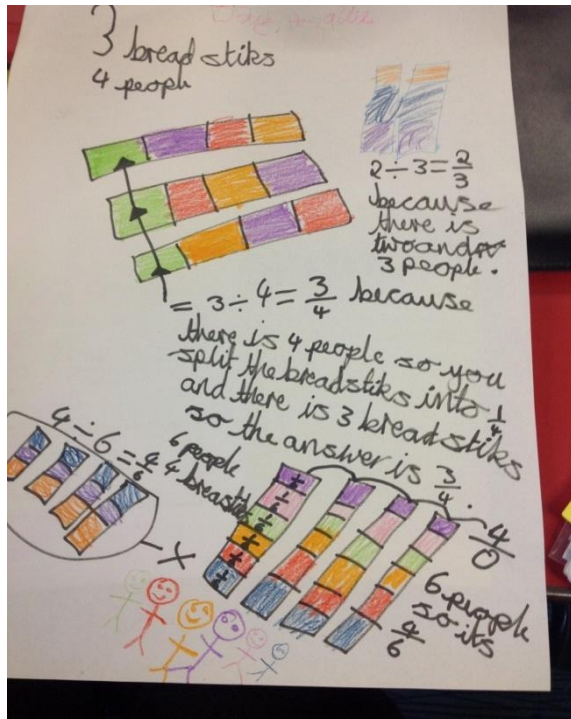 3 bread stiks
4 people
2 ÷ 3 = 2/3
because
there is
two and
3 people.
= 3 ÷ 4 = 3/4 because
there is 4 people so you
split the breadstiks into 1/4
and there is 3 bread stiks
so the answer is 3/4.
4 ÷ 6 = 4/6
6 people
4 breastiks
x
1/6
4/0
6 people
so its
4/6